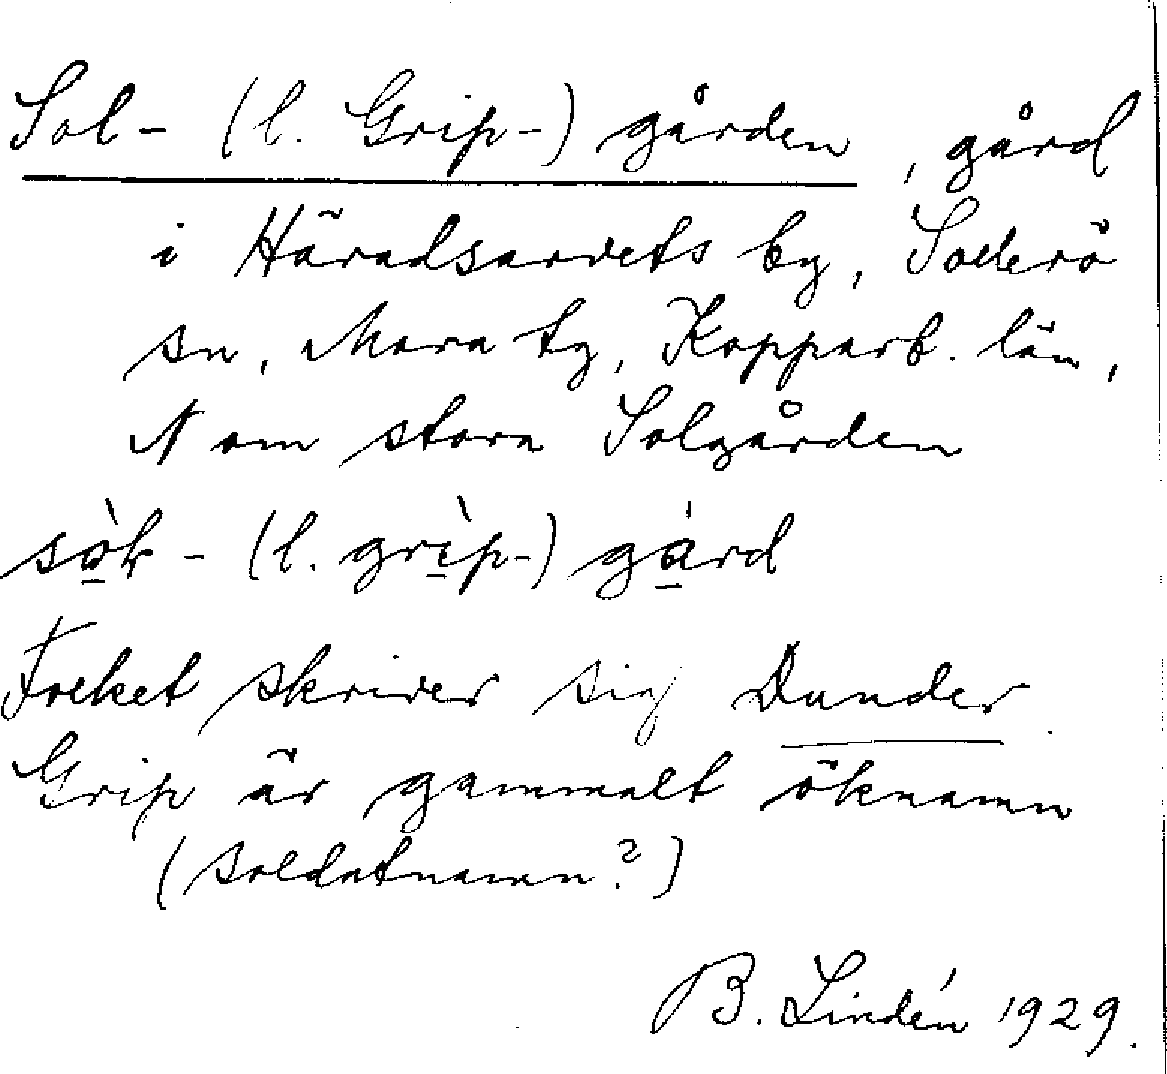 Sol- (l. Grip-) gården, gård
i Häradsarvets by, Sollerö
sn, Mora tg, Kopparb. län,
N om stora Solgården
sòk- (l. grìp-) gård
Folket skriver sig Dunder.
Grip är gammalt öknamn
(soldatnamn?)
B. Lindén 1929.